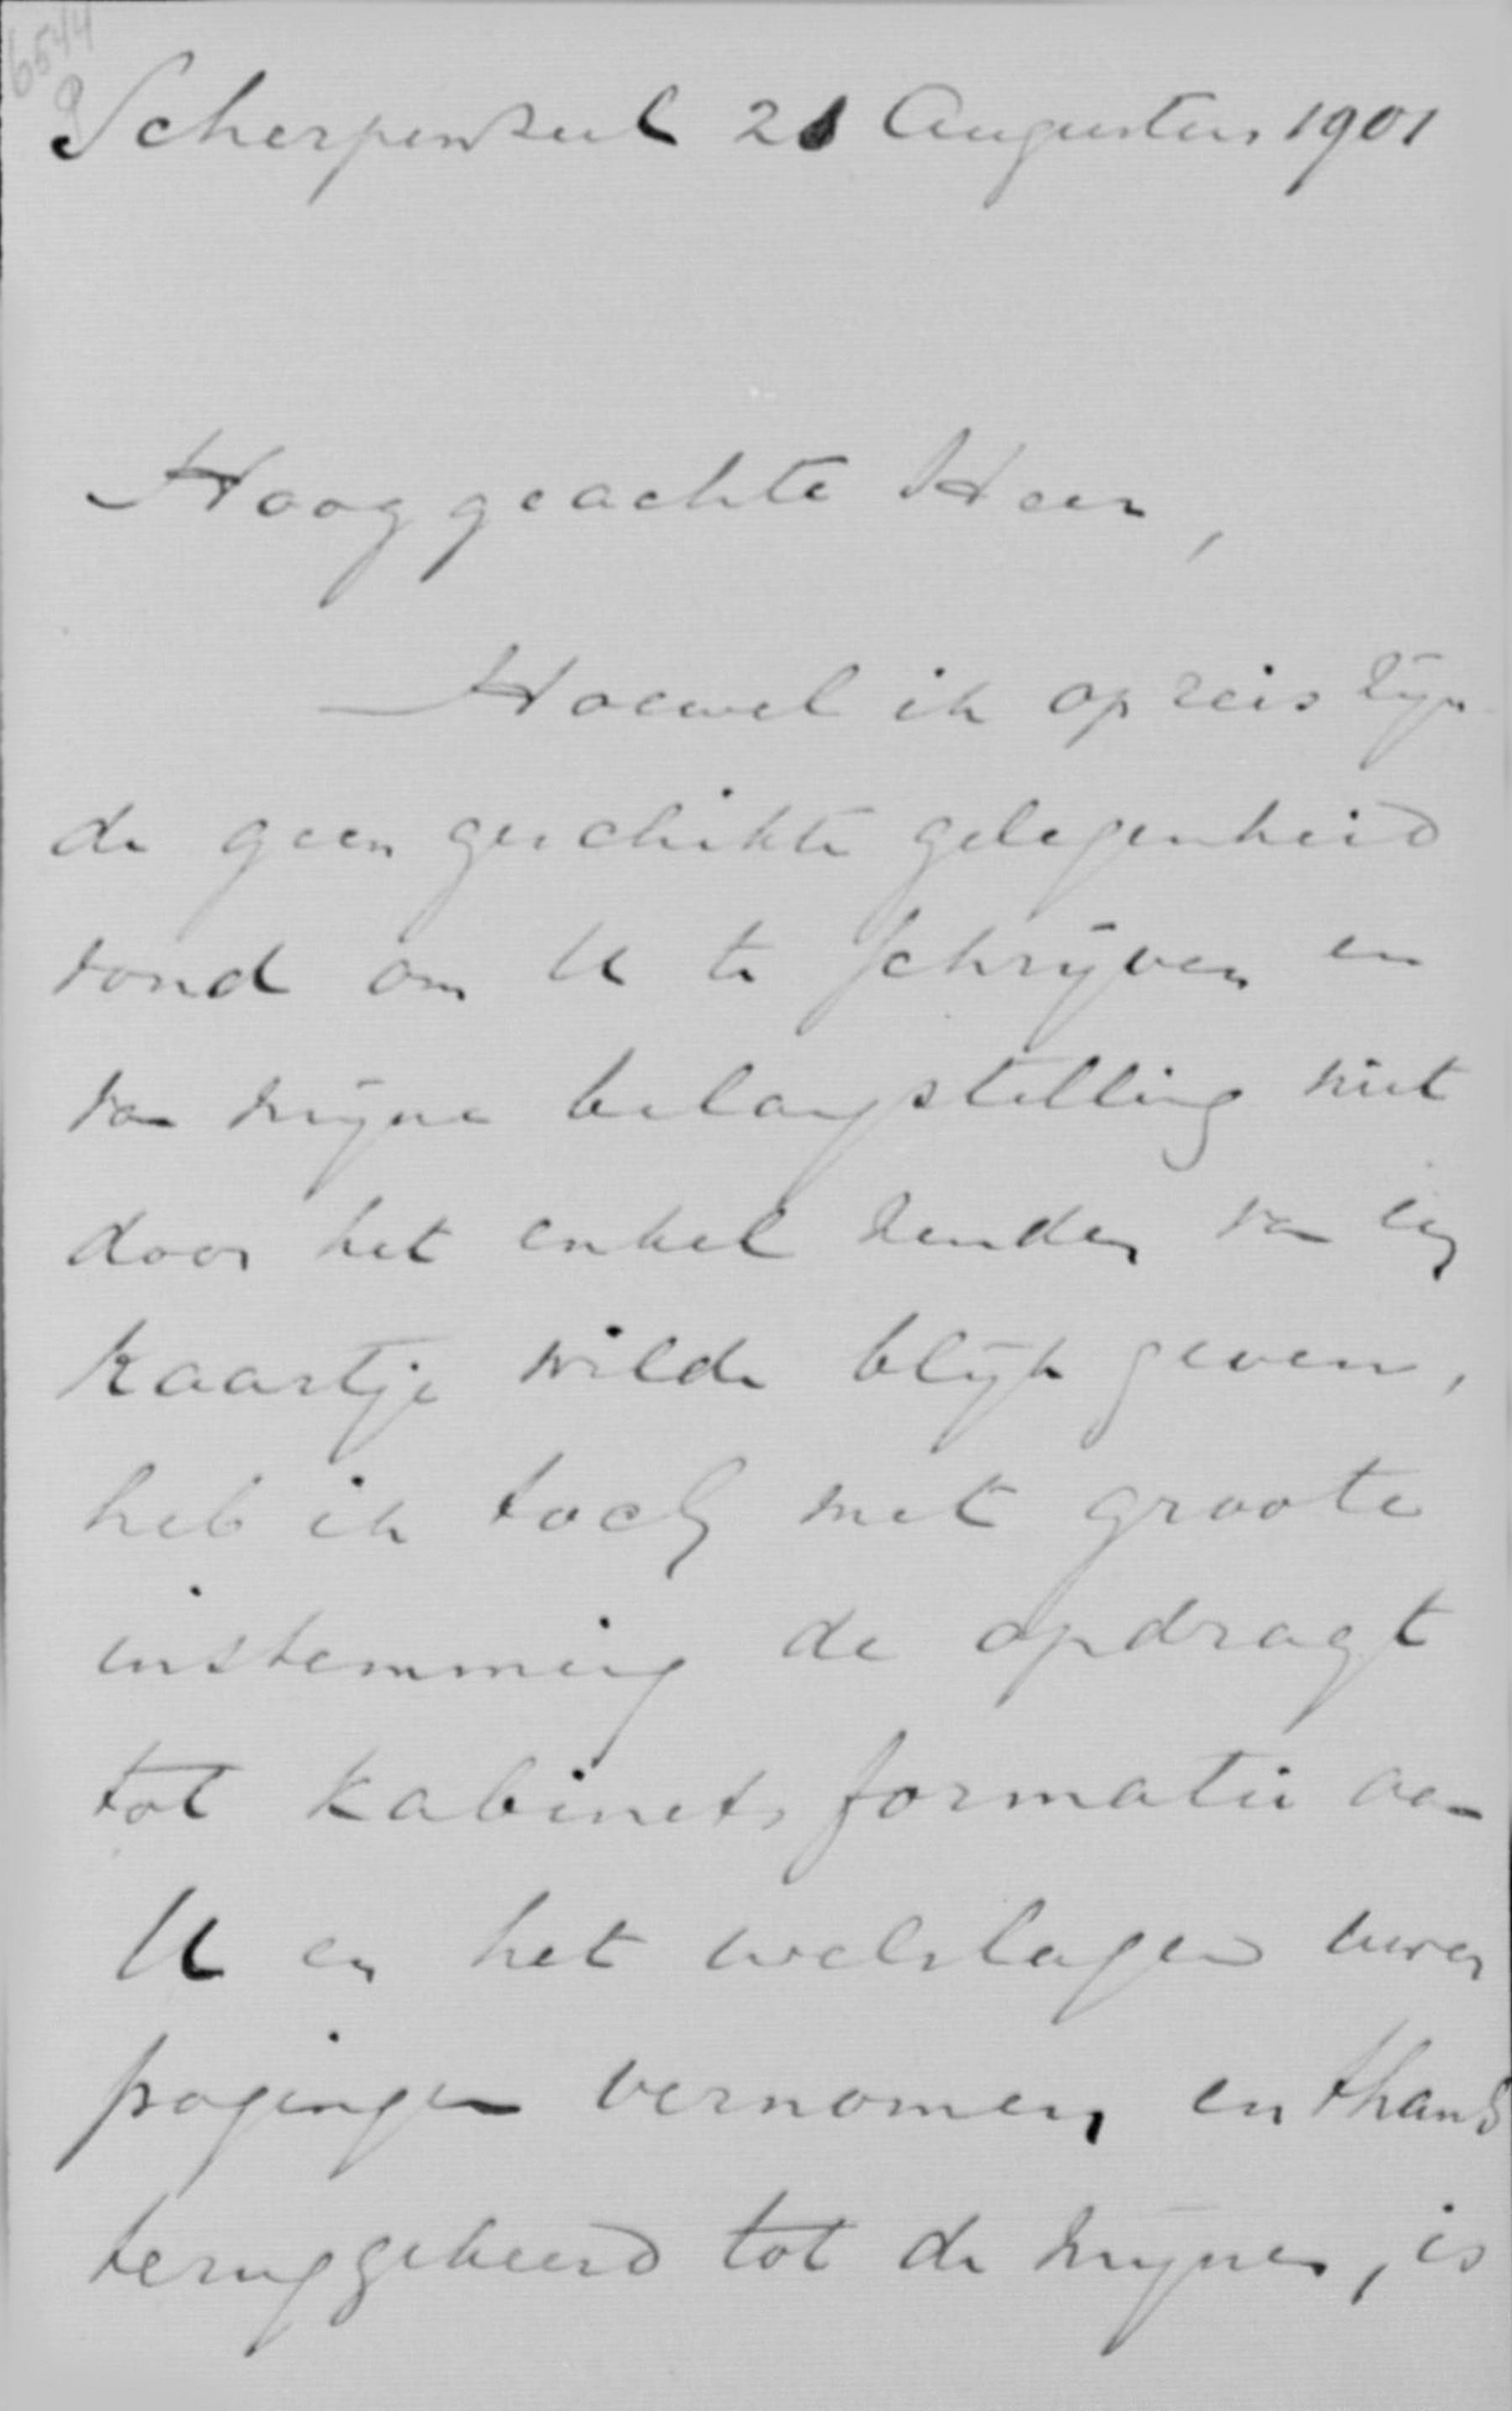 6544
Scherpenzeel 21 Augustus 1901
Hooggeachte Heer,
Hoewel ik op reis zijn
de geen geschikte gelegenheid
vond om U te schrijven en
van mijne belangstelling niet
door het enkel zenden van een
kaartje wilde blijk geven,
heb ik toch met groote
instemming de opdragt
tot kabinetsformatie aan
U en het welslagen uwer
pogingen vernomen en thans
teruggekeerd tot de mijnen, is